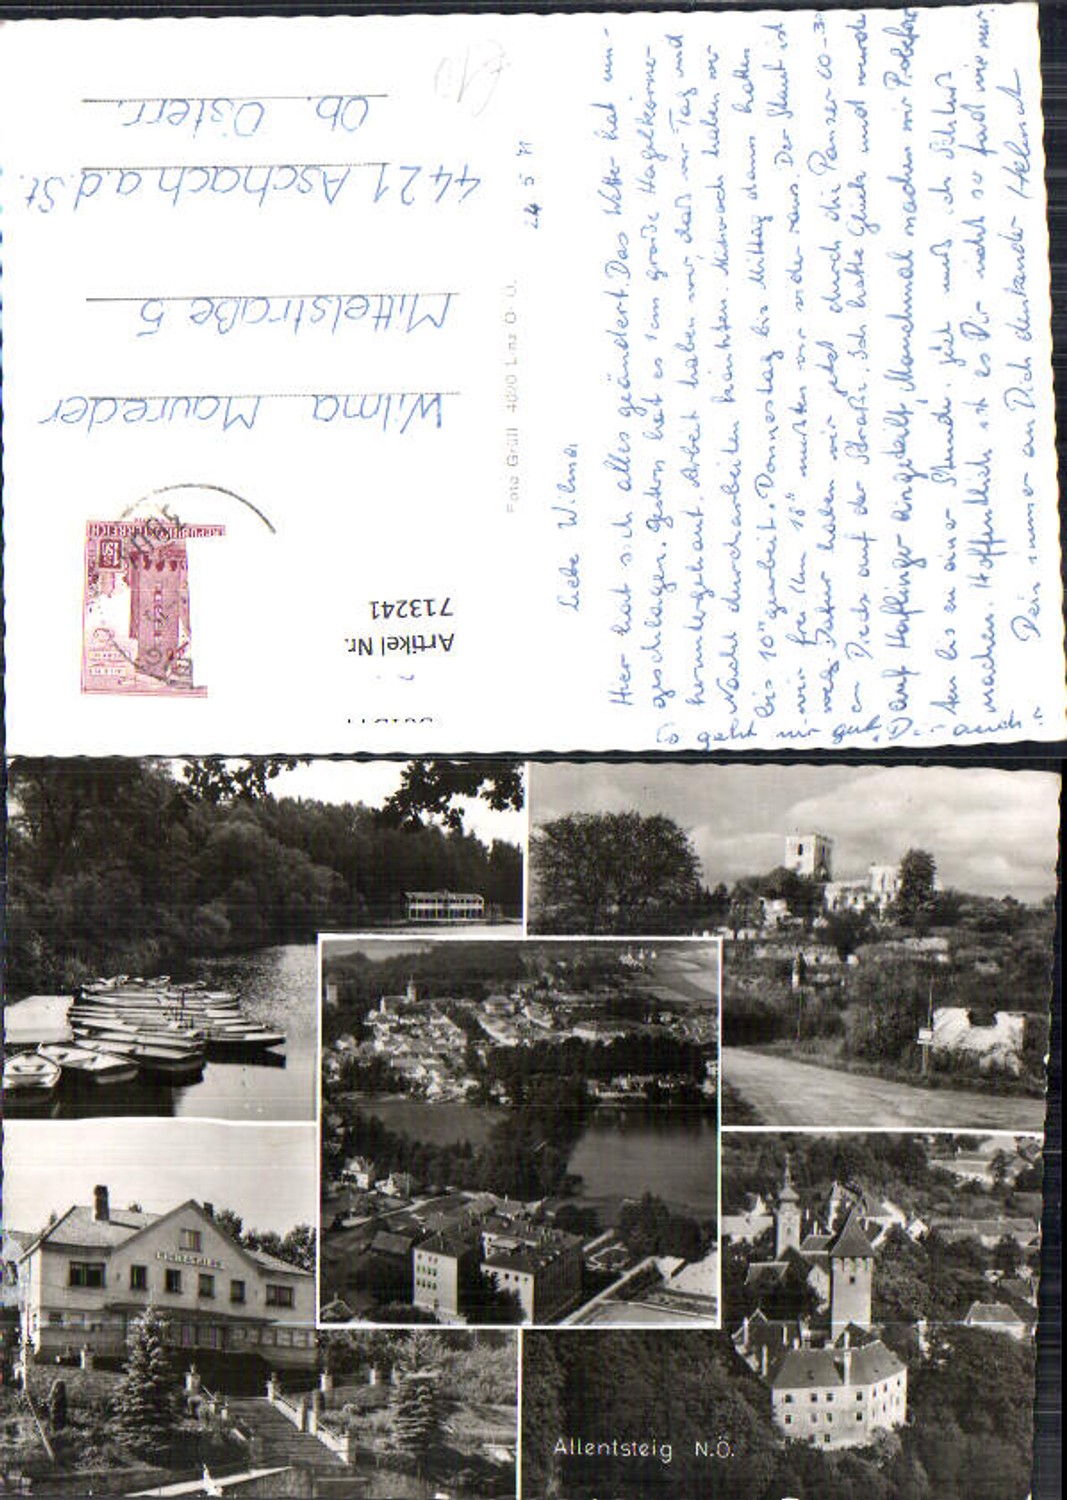 Liebe Wilma
24 5 71
Hier hat sich alles geändert. Das Wetter hat um-
geschlagen. Gestern hat es 1 cm große Hagelkörner
heruntergehaut. Arbeit haben wir, daß wir Tag und
Nacht durcharbeiten könnten. Mittwoch haben wir
bis 10°° gearbeitet. Donnerstag bis Mittag dann hatten
wir frei. Um 18°° mußten wir wieder raus. Der Staub ist
weg. Dafür haben wir jetzt durch die Panzer 20-30
cm Dreck auf der Straße. Ich hatte Glück und wurde
auf Haflinger eingeteilt. Manchmal machen wir
bis in einer Stunde. Jetzt muß ich Schluß
machen. Hoffentlich ist es Dir nicht so fad wie mir.
Dein immer an Dich denkender Helmut
geht mir gut. Dir auch?
Wilma Maureder
Mittelstraße 5
4421 Aschach a.d St.
Ob. Österr.
Foto Grüll 4020 Linz O. Ö.
REPUBLIK ÖSTERREICH
Artikel Nr.
713241
LICHTSPIELE
Allentsteig N.Ö.